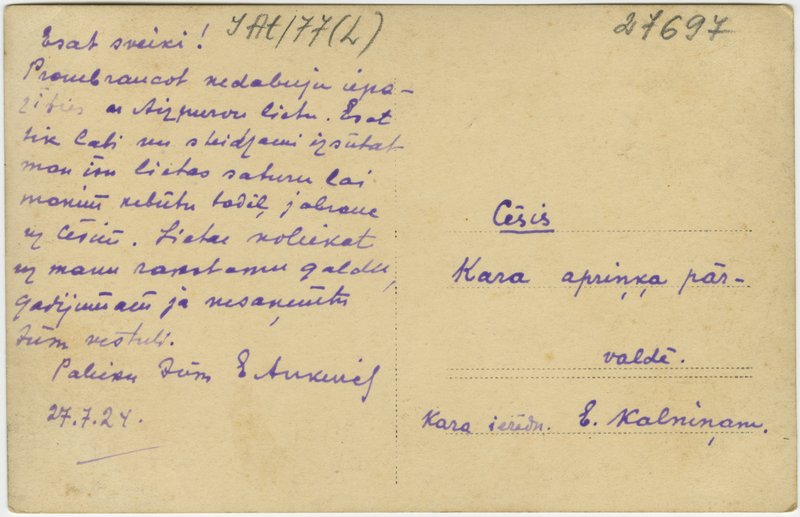 Esat sveiki!
IAt/77(L)
27697
Prombraucot nedabuju iepa-
zīties ar Aizpurvu lietu. Esat
tik labi un steidzami izsūtat
man īsu lietas saturu lai
manim nebūtu todēļ jabrauc
uz Cēsīm. Lietu noliekat
uz manu rakstamu galdu,
gadijumam ja nesaņemtu
Jūsu vestuli.
Palieku Jūsu E
27.7.24.
Cēsis
Kara apriņķa pār-
valdē.
Kara ierēdn. E. Kalniņam.